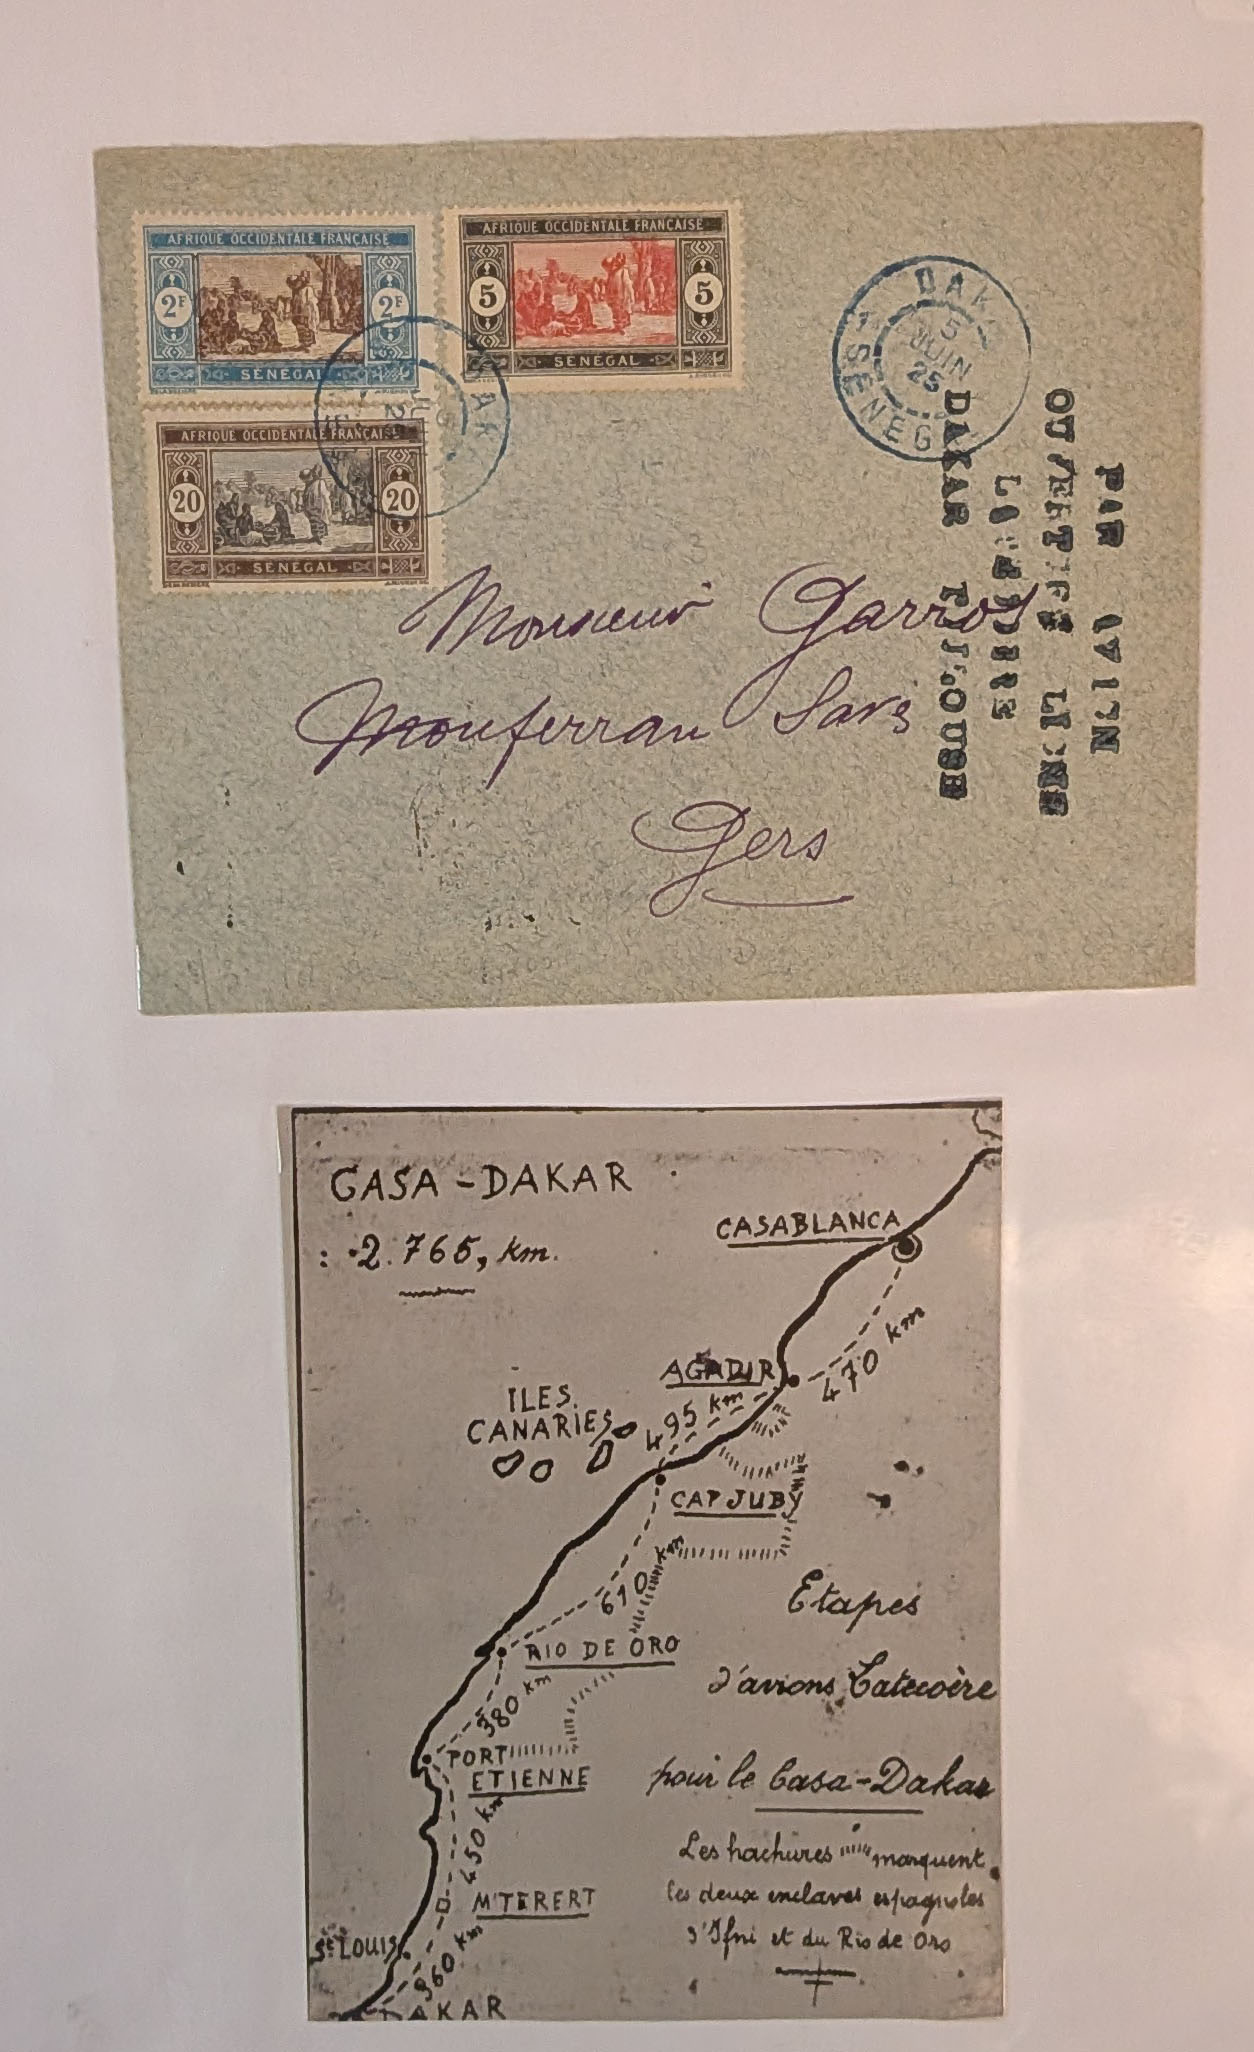 AFRIQUE OCCIDENTALE FRANÇAISE
2F 2F
SÉNÉGAL
AFRIQUE OCCIDENTALE FRANÇAISE
5 5
SÉNÉGAL
AFRIQUE OCCIDENTALE FRANÇAISE
20 20
SÉNÉGAL
DAK
5
JUIN
25
SENEG
PAR AVION
LIGNE
DAKAR TOULOUSE
Monsieur Garros
Monferran Savs
Gers
CASA - DAKAR
: 2.765, km.
CASABLANCA
470 km
AGADIR
495 km
ILES
CANARIES
CAP JUBY
610 km
RIO DE ORO
380 km
PORT
ETIENNE
450 km
M'TERERT
St LOUIS
360 km
DAKAR
Etapes
d'avions Latécoère
pour le Casa-Dakar
Les hachures marquent
les deux enclaves espagnoles
d'Ifni et du Rio de Oro